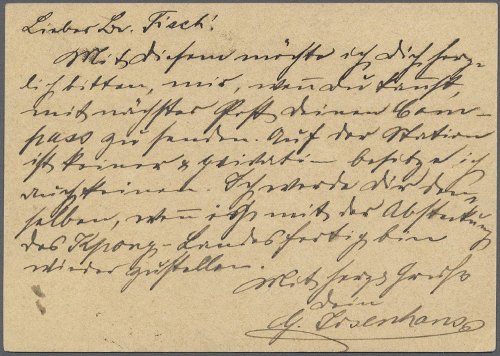 Lieber Br. Fisch!
Mit diesem möchte ich Dich herz-
lich bitten, mir, wenn Du kannst,
mit nächster Post deinen Com-
pass zu senden. Auf der Station
ist keiner & privatim besitze ich
auch keinen. Ich werde Dir den-
selben, wenn ich mit der Absteckung
des Kpong-Landes fertig bin
wieder zustellen.
Mit herzl. Gruße
dein
G. Josenhans